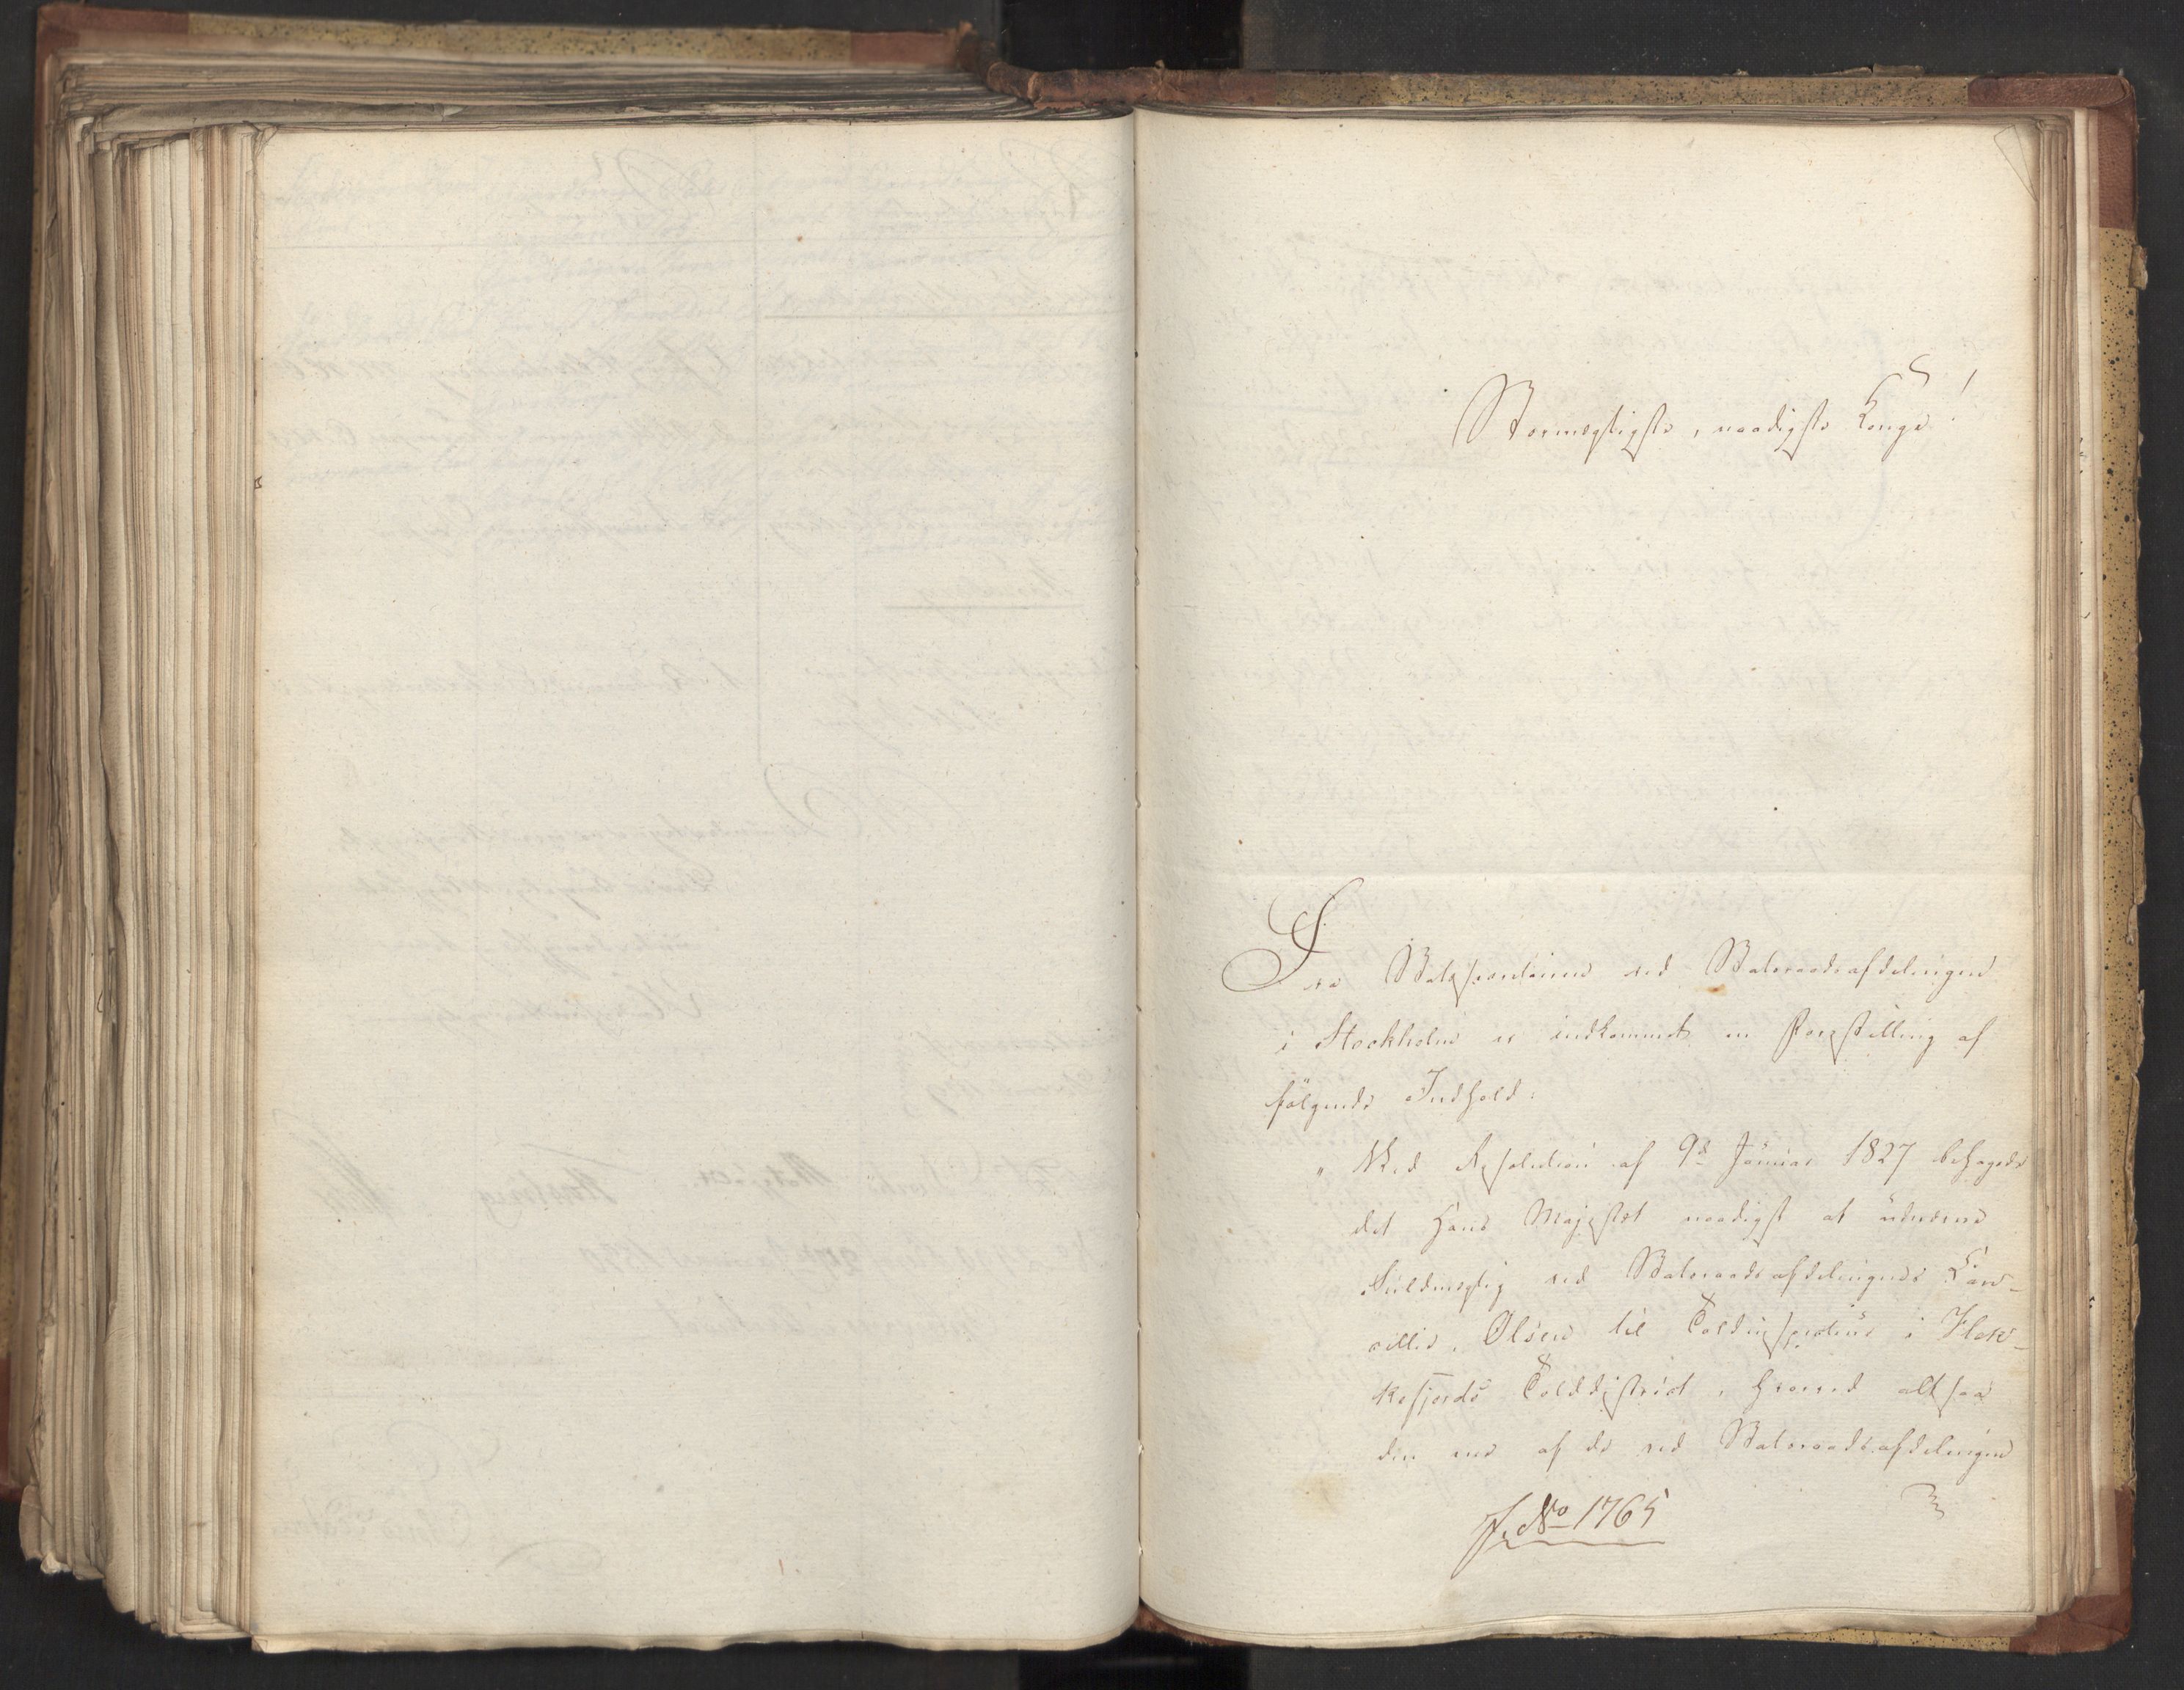 Stormægtigste, naadigste Konge!
Fra Statssecretairen ved Statsraadsafdelingen
i Stockholm er indkommet en Forestilling af
følgende Indhold:
„Ved Resolution af 9de Januar 1827 behagede
det Hans Majestæt naadigst at udnævne
Fuldmægtig ved Statsraadsafdelingens Can-
cellie, Olsen til Toldinspecteur i Flek-
kefjords Tolddistrict, hvorved altsaa
den ene af de ved Statsraadsafdelingen
J. No 1765